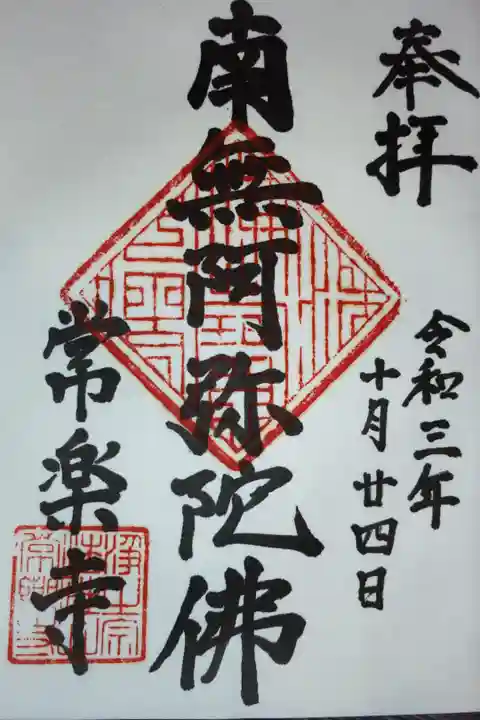 奉拝
令和三年
十月廿四日
南無阿弥陀佛
常楽寺